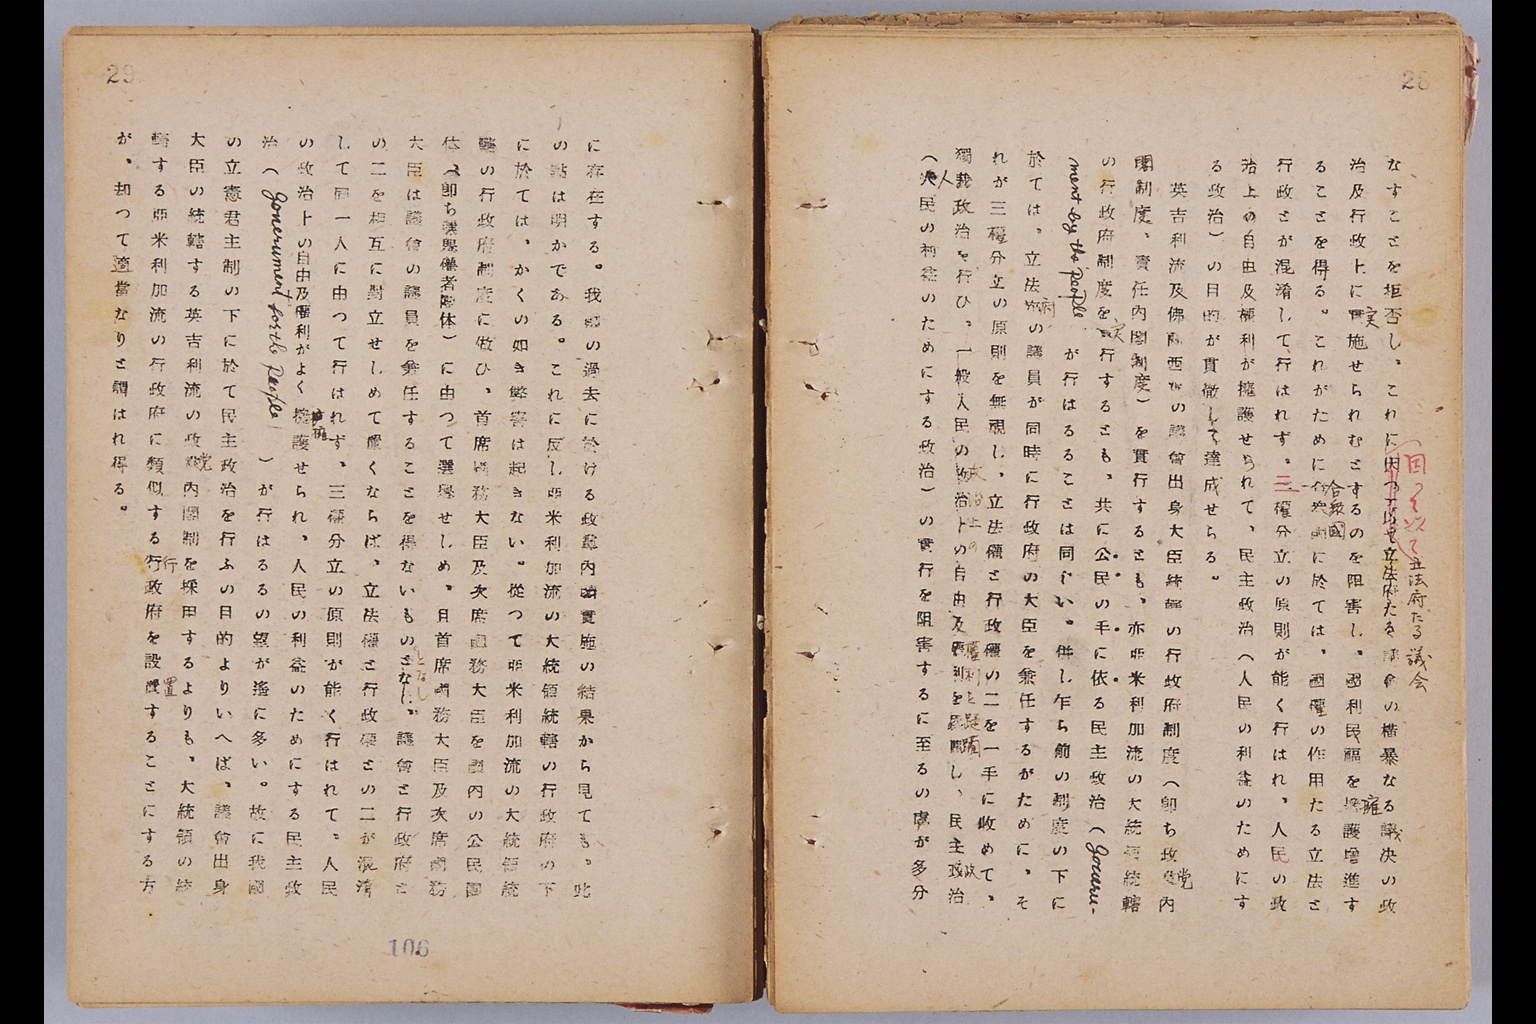 28
なすことを拒否し、これに因つて以せ立法府たる議會の横暴なる議決の政
因って以て立法府たる議会
治及行政上に實施せられむとするのを阻害し、國利民福を擁護增進す
ることを得る。これがために合衆國に於ては、國權の作用たる立法と
行政とが混淆して行はれず、三權分立の原則が能く行はれ、人民の政
治上の自由及權利が擁護せられて、民主政治（人民の利益のためにす
る政治）の目的が貫徹して達成せらる。
英吉利流及佛蘭西流の議會出身大臣統轄の行政府制度（卽ち政黨內
閣制度、責任內閣制度）を實行するとも、亦亞米利加流の大統領統轄
の行政府制度を實行するとも、共に公民の手に依る民主政治（Govern-
ment by the people が行はるることは同じい。併し乍ら前の制度の下に
於ては、立法府の議員が同時に行政府の大臣を兼任するがために、そ
れが三權分立の原則を無視し、立法權と行政權の二を一手に收めて、
獨裁政治を行ひ、一般人民の政治上の自由及權利を蹂躪し、民主政治
（人民の利益のためにする政治）の實行を阻害するに至るの虞が多分
29
に存在する。我國の過去に於ける政黨內閣實施の結果から見ても、此
の點は明かである。これに反し亞米利加流の大統領統轄の行政府の下
に於ては、かくの如き弊害は起きない。從つて亞米利加流の大統領統
轄の行政府制度に倣ひ、首席國務大臣及次席國務大臣を國內の公民團
体（卽ち選擧權者團体）に由つて選擧せしめ、且首席國務大臣及次席國務
大臣は議會の議員を兼任することを得ないものとなし、議會と行政府と
の二を相互に對立せしめて置くならば、立法權と行政權との二が混淆
して同一人に由つて行はれず、三權分立の原則が能く行はれて、人民
の政治上の自由及權利がよく擁護せられ、人民の利益のためにする民主政
治（Government for the People）が行はるるの望が遙に多い。故に我國
の立憲君主制の下に於て民主政治を行ふの目的よりいへば、議會出身
大臣の統轄する英吉利流の政黨內閣制を採用するよりも、大統領の統
轄する亞米利加流の行政府に類似する行政府を設置することにする方
が、却つて適當なりと謂はれ得る。
106